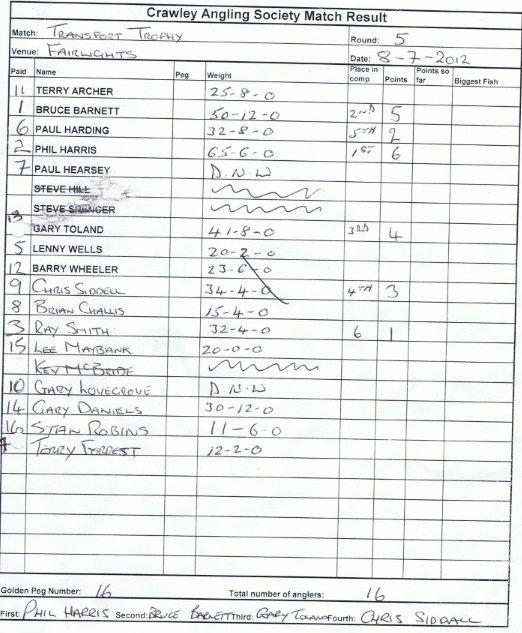 Crawley Angling Society Match Result
Match: TRANSPORT TROPHY Round: 5
Venue: FAIRLIGHTS Date: 8-7-2012
Paid Name Peg Weight Place in comp Points Points so far Biggest Fish
11 TERRY ARCHER 25-8-0
1 BRUCE BARNETT 50-12-0 2ND 5
6 PAUL HARDING 32-8-0 5TH 2
2 PHIL HARRIS 65-6-0 1ST 6
7 PAUL HEARSEY D.N.W
STEVE HILL
STEVE SPENCER
13 GARY TOLAND 41-8-0 3RD 4
5 LENNY WELLS 20-2-0
12 BARRY WHEELER 23-6-0
9 CHRIS SIDDELL 34-4-0 4TH 3
8 BRIAN CHALLIS 15-4-0
3 RAY SMITH 32-4-0 6 1
15 LEE MAYBANK 20-0-0
KEV MCBRIDE
10 GARY LOVEGROVE D.N.W
14 GARY DANIELS 30-12-0
16 STAN ROBINS 11-6-0
TERRY FORREST 12-2-0
Golden Peg Number: 16 Total number of anglers: 16
First: PHIL HARRIS Second: BRUCE BARNETT Third: GARY TOLAND Fourth: CHRIS SIDDALL